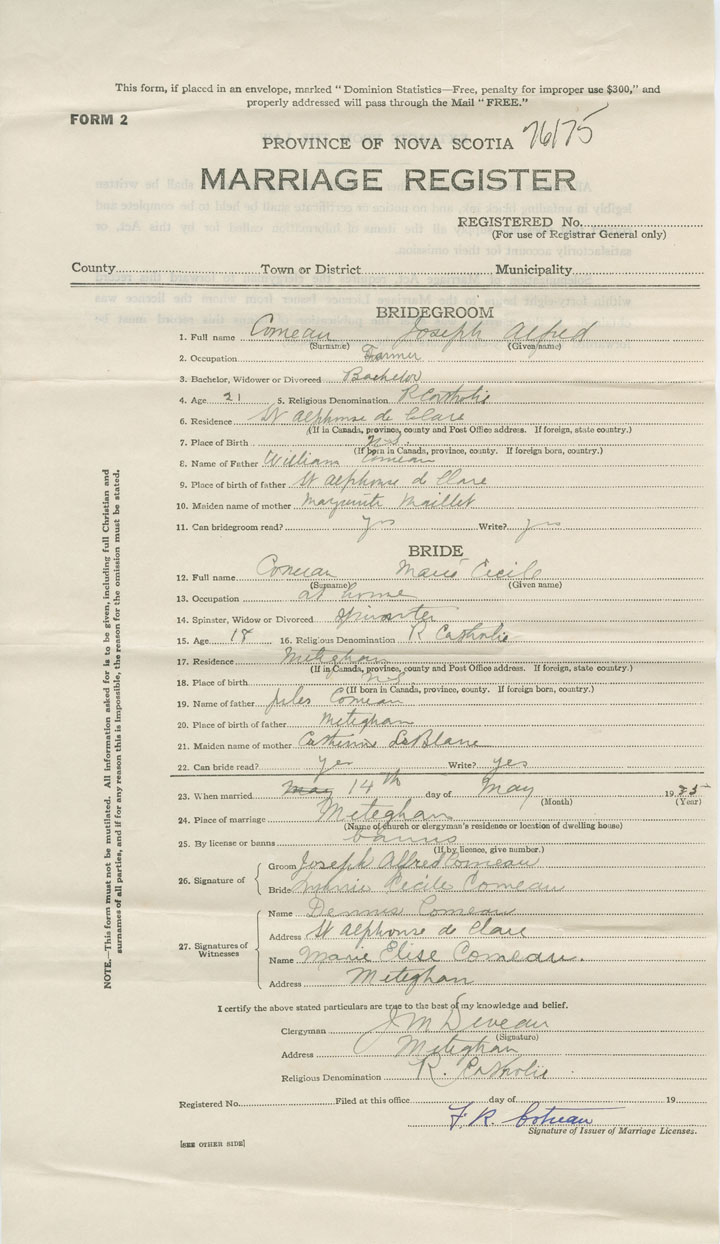 This form, if placed in an envelope, marked “Dominion Statistics—Free, penalty for improper use $300,” and
properly addressed will pass through the Mail “FREE.”
FORM 2
PROVINCE OF NOVA SCOTIA 76/75
MARRIAGE REGISTER
REGISTERED No.
(For use of Registrar General only)
County Town or District Municipality
BRIDEGROOM
1. Full name Comeau Joseph Alfred
(Surname) (Given name)
2. Occupation Farmer
3. Bachelor, Widower or Divorced Bachelor
4. Age 21 5. Religious Denomination R Catholic
6. Residence St Alphonse de Clare
(If in Canada, province, county and Post Office address. If foreign, state country.)
7. Place of Birth N.S.
(If born in Canada, province, county. If foreign born, country.)
8. Name of Father William Comeau
9. Place of birth of father St Alphonse d Clare
10. Maiden name of mother Marguerite Maillet
11. Can bridegroom read? yes Write? yes
BRIDE
12. Full name Comeau Marie Cecile
(Surname) (Given name)
13. Occupation at home
14. Spinster, Widow or Divorced Spinster
15. Age 18 16. Religious Denomination R Catholic
17. Residence Meteghan
(If in Canada, province, county and Post Office address. If foreign, state country.)
18. Place of birth N.S
(If born in Canada, province, county. If foreign born, country.)
19. Name of father Jules Comeau
20. Place of birth of father Meteghan
21. Maiden name of mother Catherine LeBlanc
22. Can bride read? yes Write? yes
23. When married May 14th day of May 1935
(Month) (Year)
24. Place of marriage Meteghan
(Name of church or clergyman's residence or location of dwelling house)
25. By license or banns banns
(If by licence, give number.)
26. Signature of Groom Joseph Alfred Comeau
Bride Marie Cecile Comeau
27. Signatures of Witnesses
Name Dennis Comeau
Address St Alphonse de Clare
Name Marie Elise Comeau.
Address Meteghan
I certify the above stated particulars are true to the best of my knowledge and belief.
Clergyman J M Deveau
(Signature)
Address Meteghan
Religious Denomination R. Catholic
Registered No. Filed at this office day of 19
F. R.
Signature of Issuer of Marriage Licenses.
[SEE OTHER SIDE]
NOTE.—This form must not be mutilated. All information asked for is to be given, including full Christian and
surnames of all parties, and if for any reason this is impossible, the reason for the omission must be stated.